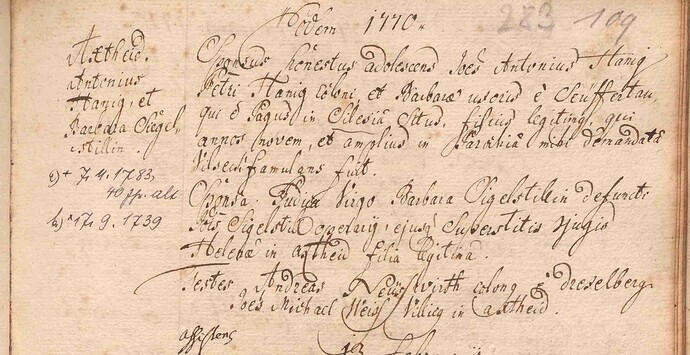 Eodem 1770.
283 109
Axtheid.
Antonius
Hanig, et
Barbara Sigel-
stillin.
e) + 7.4.1783
40 ff. alt
b) * 17.9.1739
Sponsus honestus adolescens Joes Antonius Hanig
Petri Hanig coloni, et Barbaræ uxoris è Seiffertau,
qui è Pagus in Silesia situs, filius legitimg, qui
annos novem, et amplius in Parochia mihi demandata
Vilsecii famulans fuit.
Sponsa. Pudica Virgo Barbara Sigelstillin defuncti
Jois Sigelstil operarij, ejusq superstitis jugis
Helenæ in axtheid filia legitima.
Testes Andreas Neüswirth colong è Drexelberg
Joes Michael Weiss Villicg in Axtheid.
assistens